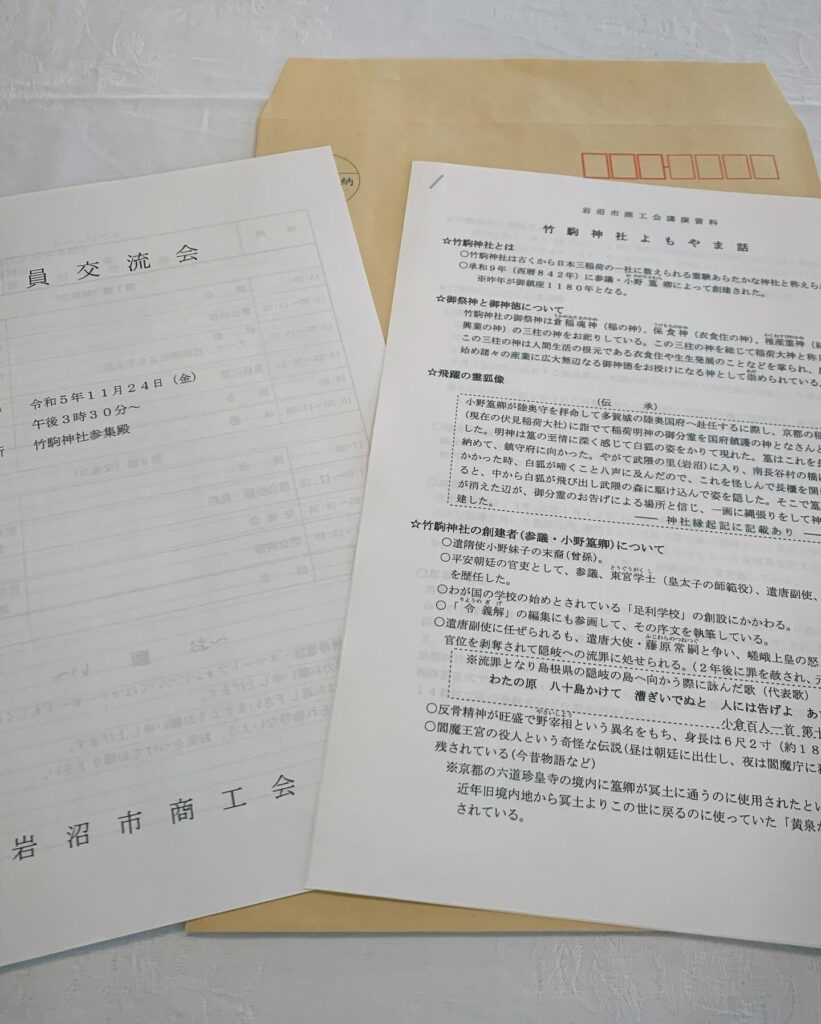 員交流会
令和5年11月24日(金)
午後3時30分~
竹駒神社参集殿
岩沼市商工会
納
岩沼市商工会講演資料
竹駒神社よもやま話
☆竹駒神社とは
○竹駒神社は古くから日本三稲荷の一社に数えられる霊験あらたかな神社と称えら
○承和9年(西暦842年)に参議・小野篁卿によって創建された。
※昨年が御鎮座1180年となる。
☆御祭神と御神徳について
竹駒神社の御祭神は倉稲魂神(稲の神)、保食神(衣食住の神)、稚産霊神
興業の神)の三柱の神をお祀りしている。この三柱の神を総じて稲荷大神と称
この三柱の神は人間生活の根元である衣食住や生生発展のことなどを掌られ、
始め諸々の産業に広大無辺なる御神徳をお授けになる神として崇められている。
☆飛躍の霊狐像
(伝 承)
小野篁卿が陸奥守を拝命して多賀城の陸奥国府へ赴任するに際し、京都の稲
(現在の伏見稲荷大社)に詣でて稲荷明神の御分霊を国府鎮護の神となさんと
した。明神は篁の至情に深く感じて白狐の姿をかりて現れた。篁はこれを長
納めて、鎮守府に向かった。やがて武隈の里(岩沼)に入り、南長谷村の橋に
かかった時、白狐が啼くこと八声に及んだので、これを怪しんで長櫃を開
ると、中から白狐が飛び出し武隈の森に駆け込んで姿を隠した。そこで篁
が消えた辺が、御分霊のお告げによる場所と信じ、一面に縄張りをして神
建した。 ―― 神社縁起記に記載あり ――
☆竹駒神社の創建者(参議・小野篁卿)について
○遣隋使小野妹子の末裔(曾孫)。
○平安朝廷の官吏として、参議、東宮学士(皇太子の師範役)、遣唐副使、
を歴任した。
○わが国の学校の始めとされている「足利学校」の創設にかかわる。
○「令義解」の編集にも参画して、その序文を執筆している。
○遣唐副使に任ぜられるも、遣唐大使・藤原常嗣と争い、嵯峨上皇の怒
官位を剥奪されて隠岐への流罪に処せられる。(2年後に罪を赦され、元
※流罪となり島根県の隠岐の島へ向かう際に詠んだ歌(代表歌)
わたの原 八十島かけて 漕ぎいでぬと 人には告げよ あ
小倉百人一首 第十
○反骨精神が旺盛で野宰相という異名をもち、身長は6尺2寸(約18
○閻魔王宮の役人という奇怪な伝説(昼は朝廷に出仕し、夜は閻魔庁に
残されている(今昔物語など)
※京都の六道珍皇寺の境内に篁卿が冥土に通うのに使用されたとい
近年旧境内地から冥土よりこの世に戻るのに使っていた「黄泉が
されている。